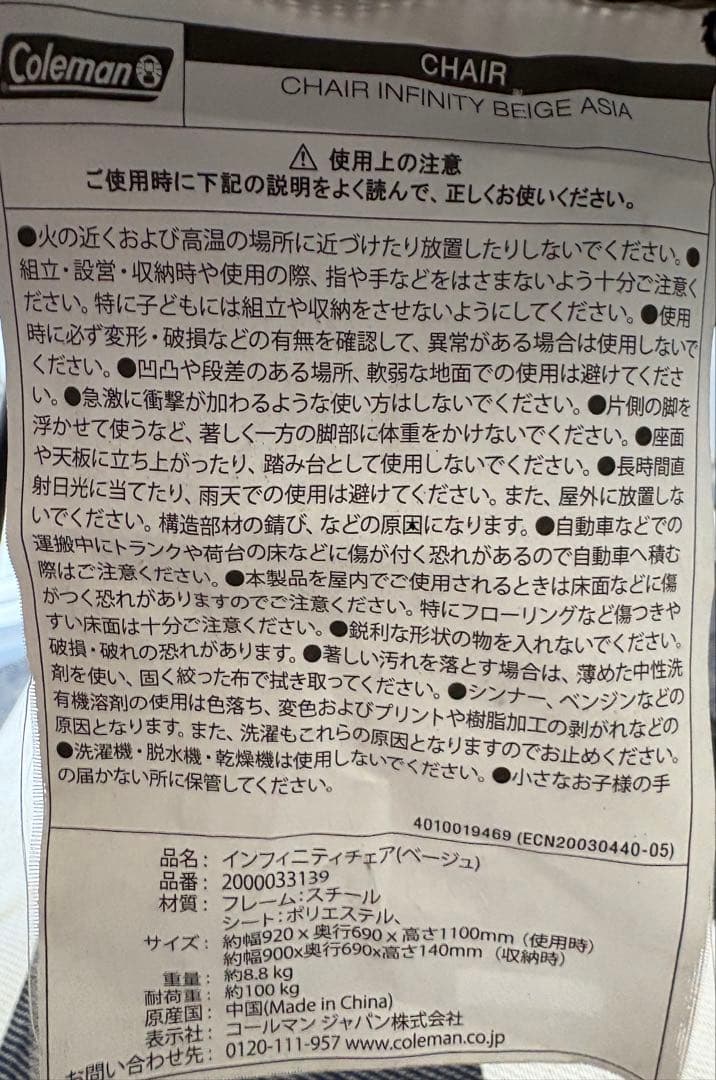 Coleman
CHAIR
CHAIR INFINITY BEIGE ASIA
⚠ 使用上の注意
ご使用時に下記の説明をよく読んで、正しくお使いください。
●火の近くおよび高温の場所に近づけたり放置したりしないでください。●
組立・設営・収納時や使用の際、指や手などをはさまないよう十分ご注意く
ださい。特に子どもには組立や収納をさせないようにしてください。●使用
時に必ず変形・破損などの有無を確認して、異常がある場合は使用しないで
ください。●凹凸や段差のある場所、軟弱な地面での使用は避けてくださ
い。●急激に衝撃が加わるような使い方はしないでください。●片側の脚を
浮かせて使うなど、著しく一方の脚部に体重をかけないでください。●座面
や天板に立ち上がったり、踏み台として使用しないでください。●長時間直
射日光に当てたり、雨天での使用は避けてください。また、屋外に放置しな
いでください。構造部材の錆び、などの原因になります。●自動車などでの
運搬中にトランクや荷台の床などに傷が付く恐れがあるので自動車へ積む
際はご注意ください。●本製品を屋内でご使用されるときは床面などに傷
がつく恐れがありますのでご注意ください。特にフローリングなど傷つきや
すい床面は十分ご注意ください。●鋭利な形状の物を入れないでください。
破損・破れの恐れがあります。●著しい汚れを落とす場合は、薄めた中性洗
剤を使い、固く絞った布で拭き取ってください。●シンナー、ベンジンなどの
有機溶剤の使用は色落ち、変色およびプリントや樹脂加工の剥がれなどの
原因となります。また、洗濯もこれらの原因となりますのでお止めください。
●洗濯機・脱水機・乾燥機は使用しないでください。●小さなお子様の手
の届かない所に保管してください。
4010019469 (ECN20030440-05)
品名： インフィニティチェア(ベージュ)
品番： 2000033139
材質： フレーム：スチール
シート：ポリエステル、
サイズ： 約幅920 x 奥行690 x 高さ1100mm（使用時）
約幅900x奥行690x高さ140mm（収納時）
重量： 約8.8 kg
耐荷重： 約100 kg
原産国： 中国(Made in China)
表示社： コールマン ジャパン株式会社
お問い合わせ先： 0120-111-957 www.coleman.co.jp